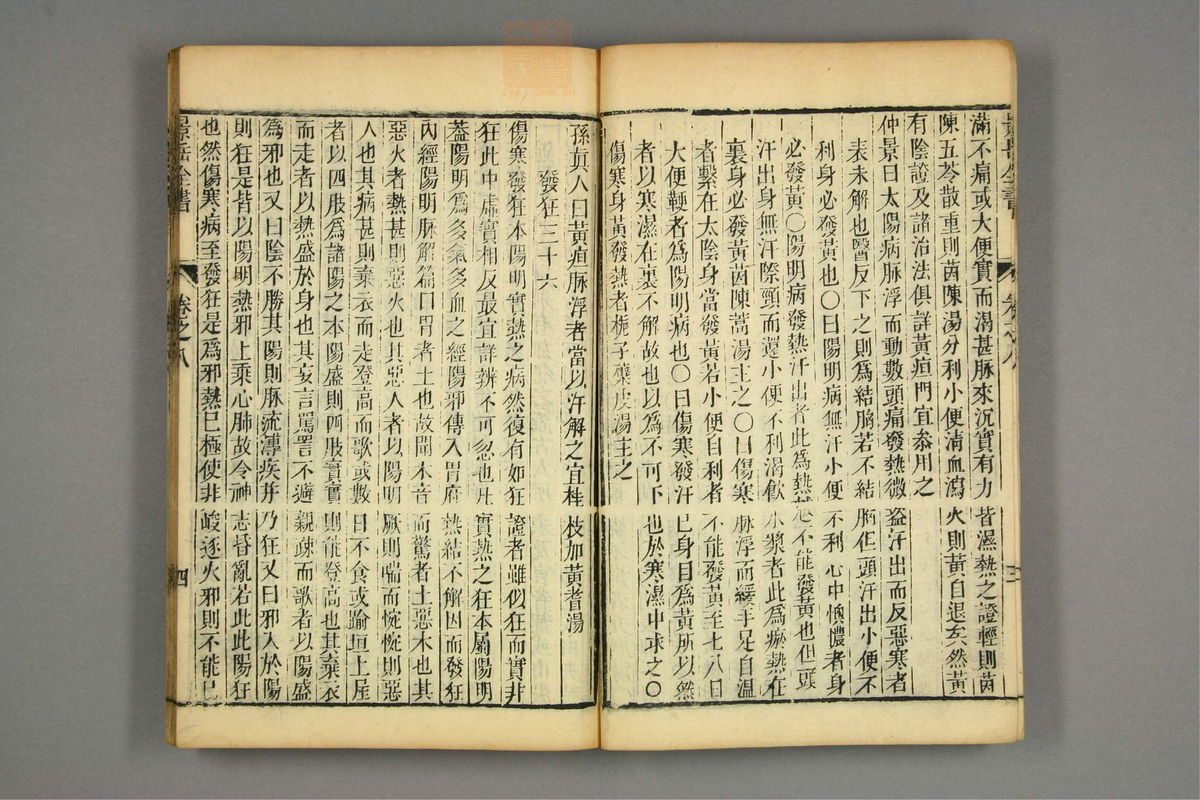 滿不痛或大便實而渴甚脉來沉實有力皆濕熱之證輕則茵
陳五苓散重則茵陳湯分利小便清血瀉火則黃自退矣然黃
有陰證及諸治法俱詳黃疸門宜叅用之
仲景曰太陽病脉浮而動數頭痛發熱微盜汗出而反惡寒者
表未解也醫反下之則爲結胸若不結胸但頭汗出小便不
利身必發黃也〇曰陽明病無汗小便不利心中懊憹者身
必發黃〇陽明病發熱汗出者此爲熱越不能發黃也但頭
汗出身無汗際頸而還小便不利渴飲水漿者此爲瘀熱在
裏身必發黃茵陳蒿湯主之〇曰傷寒脉浮而緩手足自温
者繫在太陰身當發黃若小便自利者不能發黃至七八日
大便鞕者爲陽明病也〇曰傷寒發汗已身目爲黃所以然
者以寒濕在裏不解故也以爲不可下也於寒濕中求之〇
傷寒身黃發熱者梔子蘗皮湯主之
孫真人曰黃疸脉浮者當以汗解之宜桂枝加黃耆湯
發狂三十六
傷寒發狂本陽明實熱之病然復有如狂證者雖似狂而實非
狂此中虛實相反最宜詳辨不可忽也凡實熱之狂本屬陽明
葢陽明爲多氣多血之經陽邪傳入胃府熱結不解因而發狂
內經陽明脉解篇曰胃者土也故聞木音而驚者土惡木也其
惡火者熱甚則惡火也其惡人者以陽明厥則喘而惋惋則惡
人也其病甚則棄衣而走登高而歌或數日不食或踰垣上屋
者以四肢爲諸陽之本陽盛則四肢實實則能登高也其棄衣
而走者以熱盛於身也其妄言罵詈不避親疎而歌者以陽盛
爲邪也又曰陰不勝其陽則脉流薄疾并乃狂又曰邪入於陽
則狂是皆以陽明熱邪上乘心肺故令神志昏亂若此此陽狂
也然傷寒病至發狂是爲邪熱已極使非峻逐火邪則不能已
景岳全書
卷之八
四